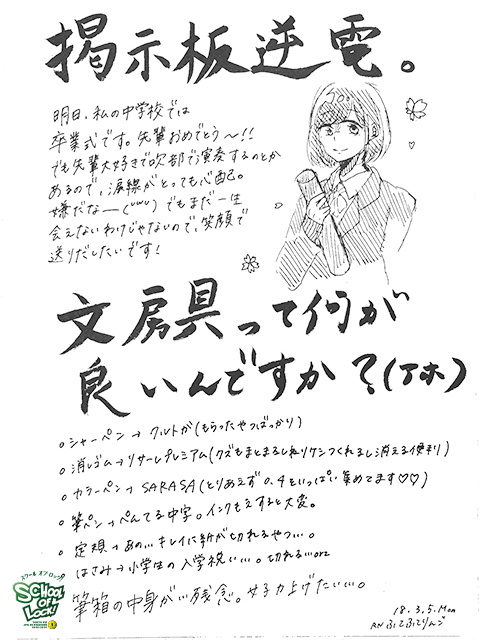 掲示板逆電。
明日、私の中学校では
卒業式です。先輩おめでとう〜!!
でも先輩大好きで吹部で演奏するのとか
あるので、涙線がとっても心配。
嫌だなー(´;ω;`) でもまだ一生
会えないわけじゃないので、笑顔で
送りだしたいです!
文房具って何が
良いんですか?(アホ)
○シャーペン→クルトガ(もらったやつばっかり)
○消しゴム→リサーレプレミアム(クズもまとまるしねりケシつくれるし消える便利)
○カラーペン→SARASA(とりあえず0.4をいっぱい集めてます♡♡)
○筆ペン→ぺんてる中字。インクもえすると大変。
○定規→あの…キレイに紙が切れるやつ…。
はさみ→小学生の入学祝い…。切れる…orz
筆箱の中身が…残念。女子力上げたい…。
スクール オブ ロック!
SCHOOL OF LOCK!
18.3.5.Mon
RN ふでふでりんご